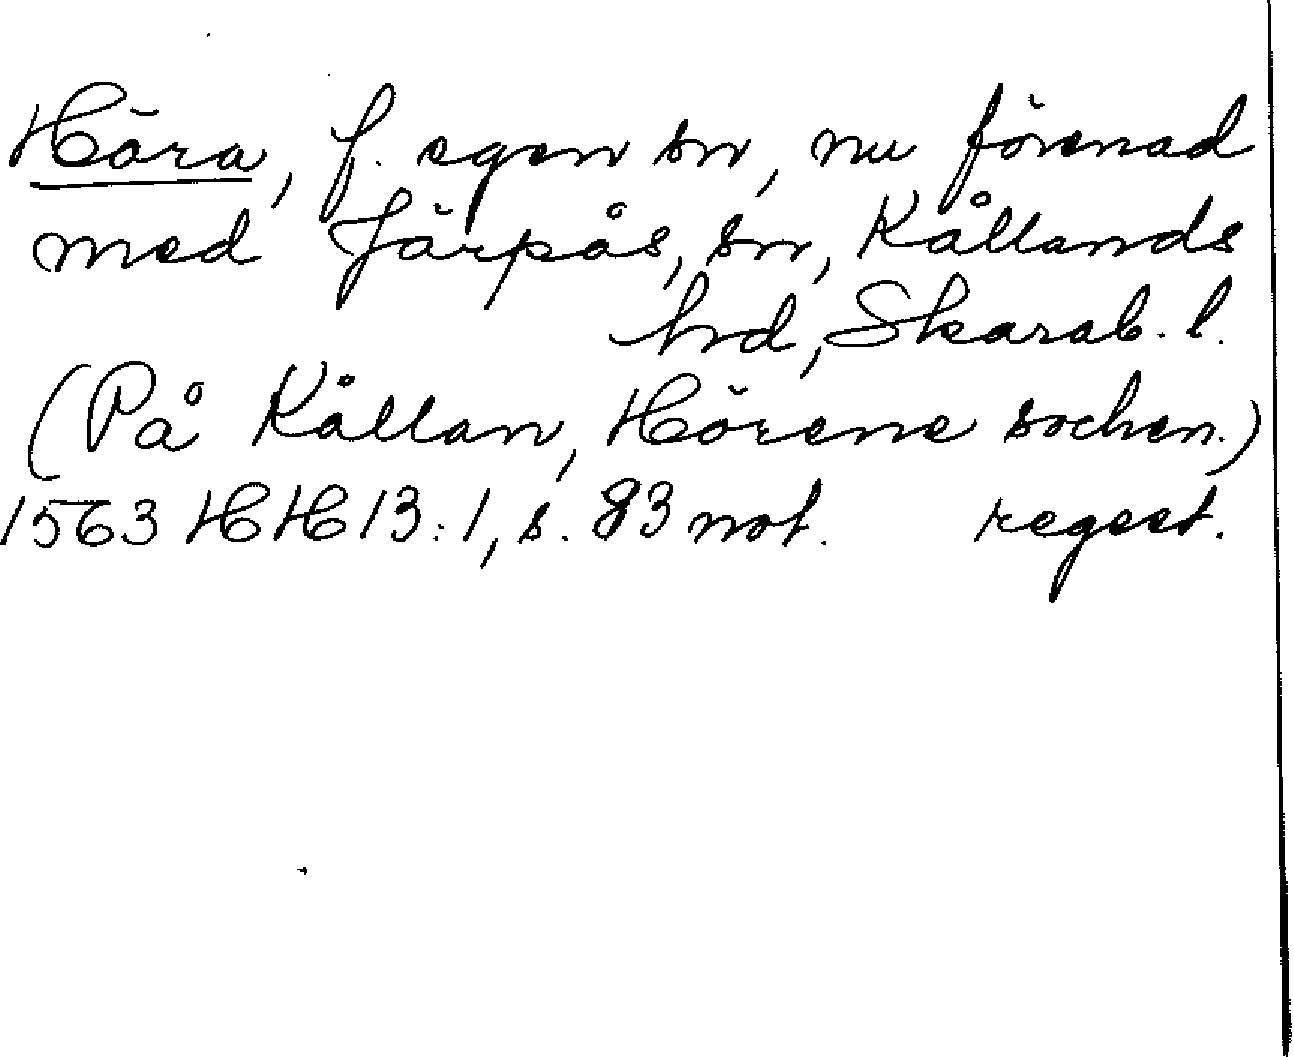 Höra, f. egen sn, nu förenad
med Järpås, sn, Kållands
hrd, Skarab. l.
(På Kållan, Hörene sochen.)
1563 HH 13:1, s. 83 not. regest.